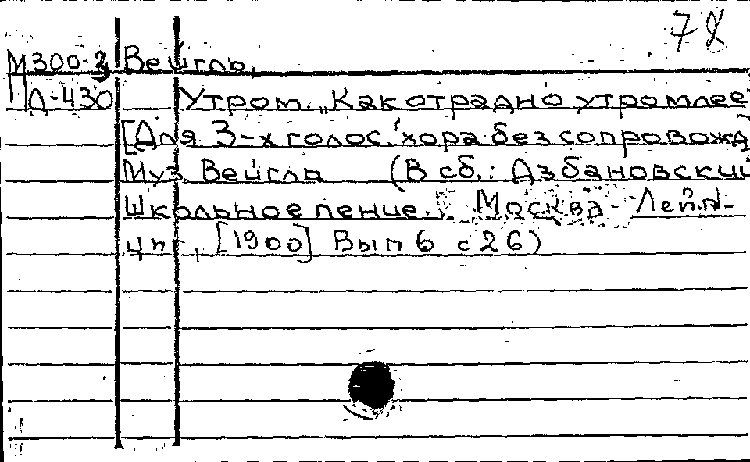 78
М300-3 Вейгль,
Д-430 Утром. „Как отрадно утром лее
[Для 3-х голос. хора без сопровожд
Муз. Вейгль (В сб.: Азбановский
Школьное пение. Москва-Лейп-
циг, [1900] Вып 6 с 26)